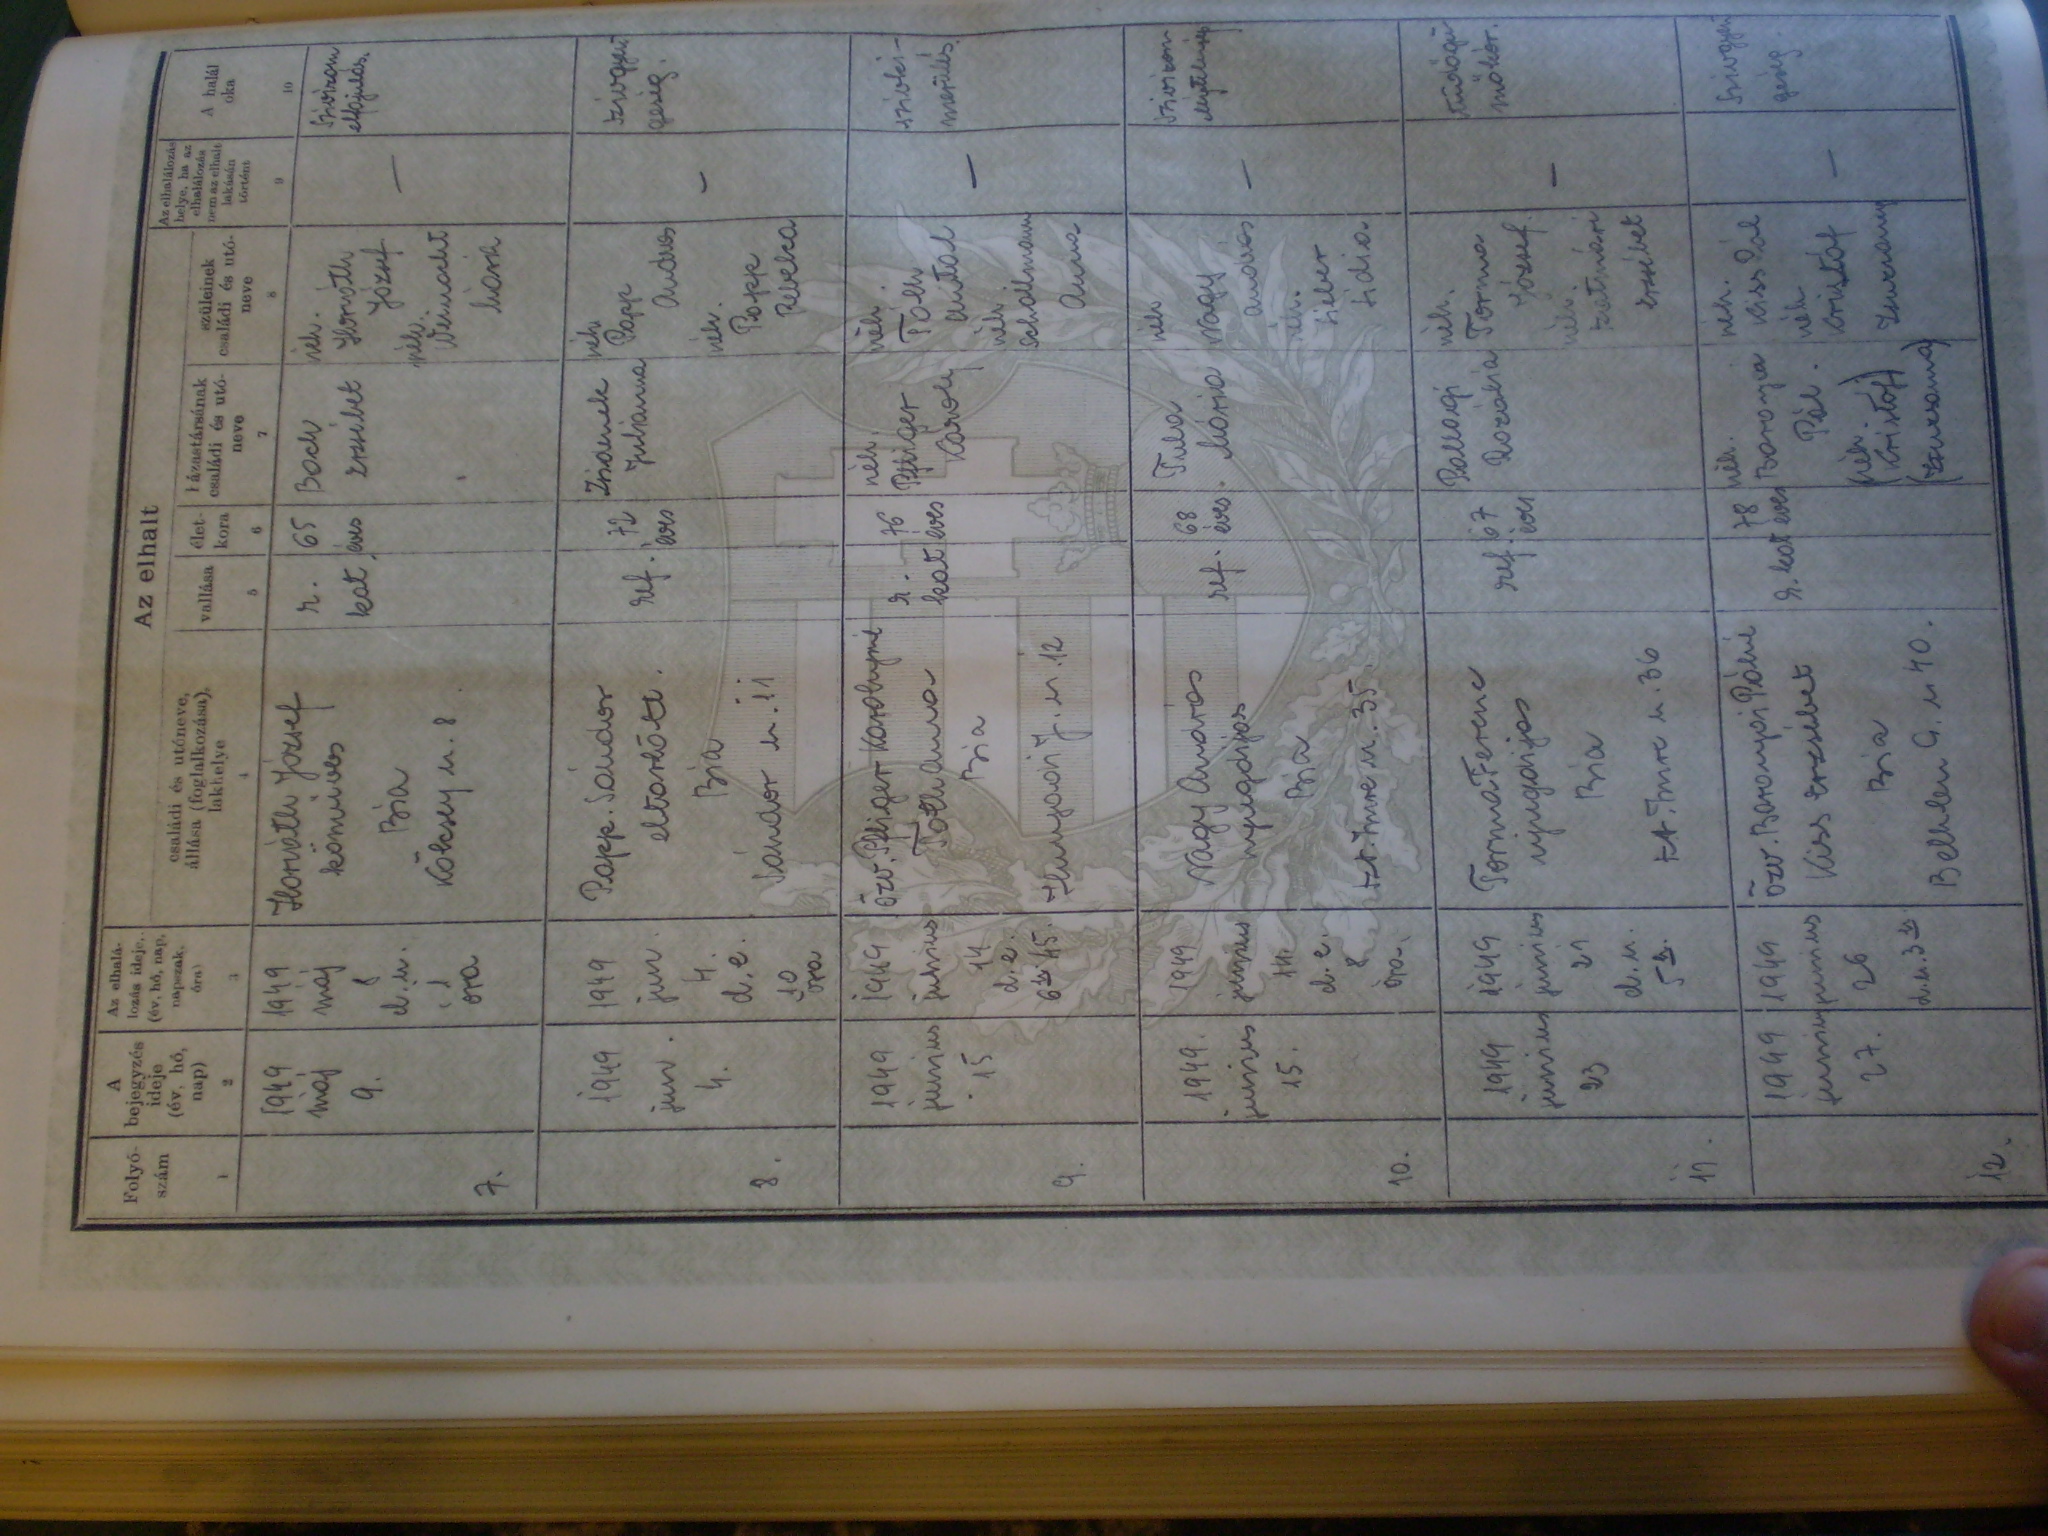 Az elhalt
Folyó-
szám
A
bejegyzés
ideje
(év, hó,
nap)
Az elhalá-
lozás ideje,
(év, hó, nap,
napszak,
óra)
családi és utóneve,
állása (foglalkozása),
lakhelye
vallása
élet-
kora
házastársának
családi és utó-
neve
szüleinek
családi és utó-
neve
Az elhalálozás
helye, ha az
elhalálozás
nem az elhalt
lakásán
történt
A halál
oka
1
2
3
4
5
6
7
8
9
10
7.
1949
máj
9.
1949
máj
8
d.u.
1
óra
Horváth József
kőmíves
Bia
Kölcsey u. 8.
r.
kat.
65
éves
Boch
Erzsébet
néh.
Horváth
József
néh.
Mária
—
Szívizom
elfajulás.
8.
1949
jun.
4.
1949
jun.
4.
d.e.
10
óra
Papp Sándor
eltartott.
Bia
Sándor u. 11
ref.
72
éves
Julianna
néh
Papp
András
néh.
Papp
Rebeka
—
Szívgyen
geség.
9.
1949
junius
15.
1949
junius
14
d.e.
6 45.
özv. Pfliger Károlyné
Tóth Anna
Bia
Hunyadi J. u. 12
r.
kat
76
éves
néh.
Pfliger
Károly
néh.
Tóth
Antal
néh
Anna
—
szívki-
merülés.
10.
1949.
junius
15.
1949
junius
14.
d.e.
8
óra.
Nagy András
nyugdíjas
Bia
Szt. Imre u. 35.
ref.
68
éves.
Tula
Mária
néh
Nagy
András
néh.
Sieber
Lidia
—
Szívizom
11.
1949
junius
23
1949
junius
21
d.u.
5
Torma Ferenc
nyugdíjas
Bia
Szt. Imre u. 36
ref.
67
éves
Pallagi
Zsuzsánna
néh.
Torma
József
néh.
Szatmári
Erzsébet
—
12.
1949
junius
27.
1949
junius
26
d.u. 3
Özv. Baranyai Pálné
Kiss Erzsébet
Bia
Bethlen G. u 40.
r. kat
78
éves
néh.
Baranyai
Pál.
(néh.
Kristóf)
(Zsuzsanna)
néh.
Kiss Pál
néh
Kristóf
Zsuzsanna
—
Szívgyen
geség.